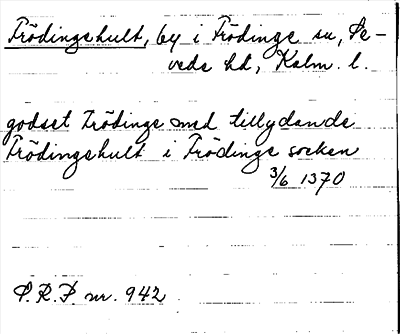 Frödingehult, by i Frödinge sn, Se-
vede hd, Kalm. l.
godset Frödinge med tillydande
Frödingehult i Frödinge socken
3/6 1370
S.R.P nr. 942